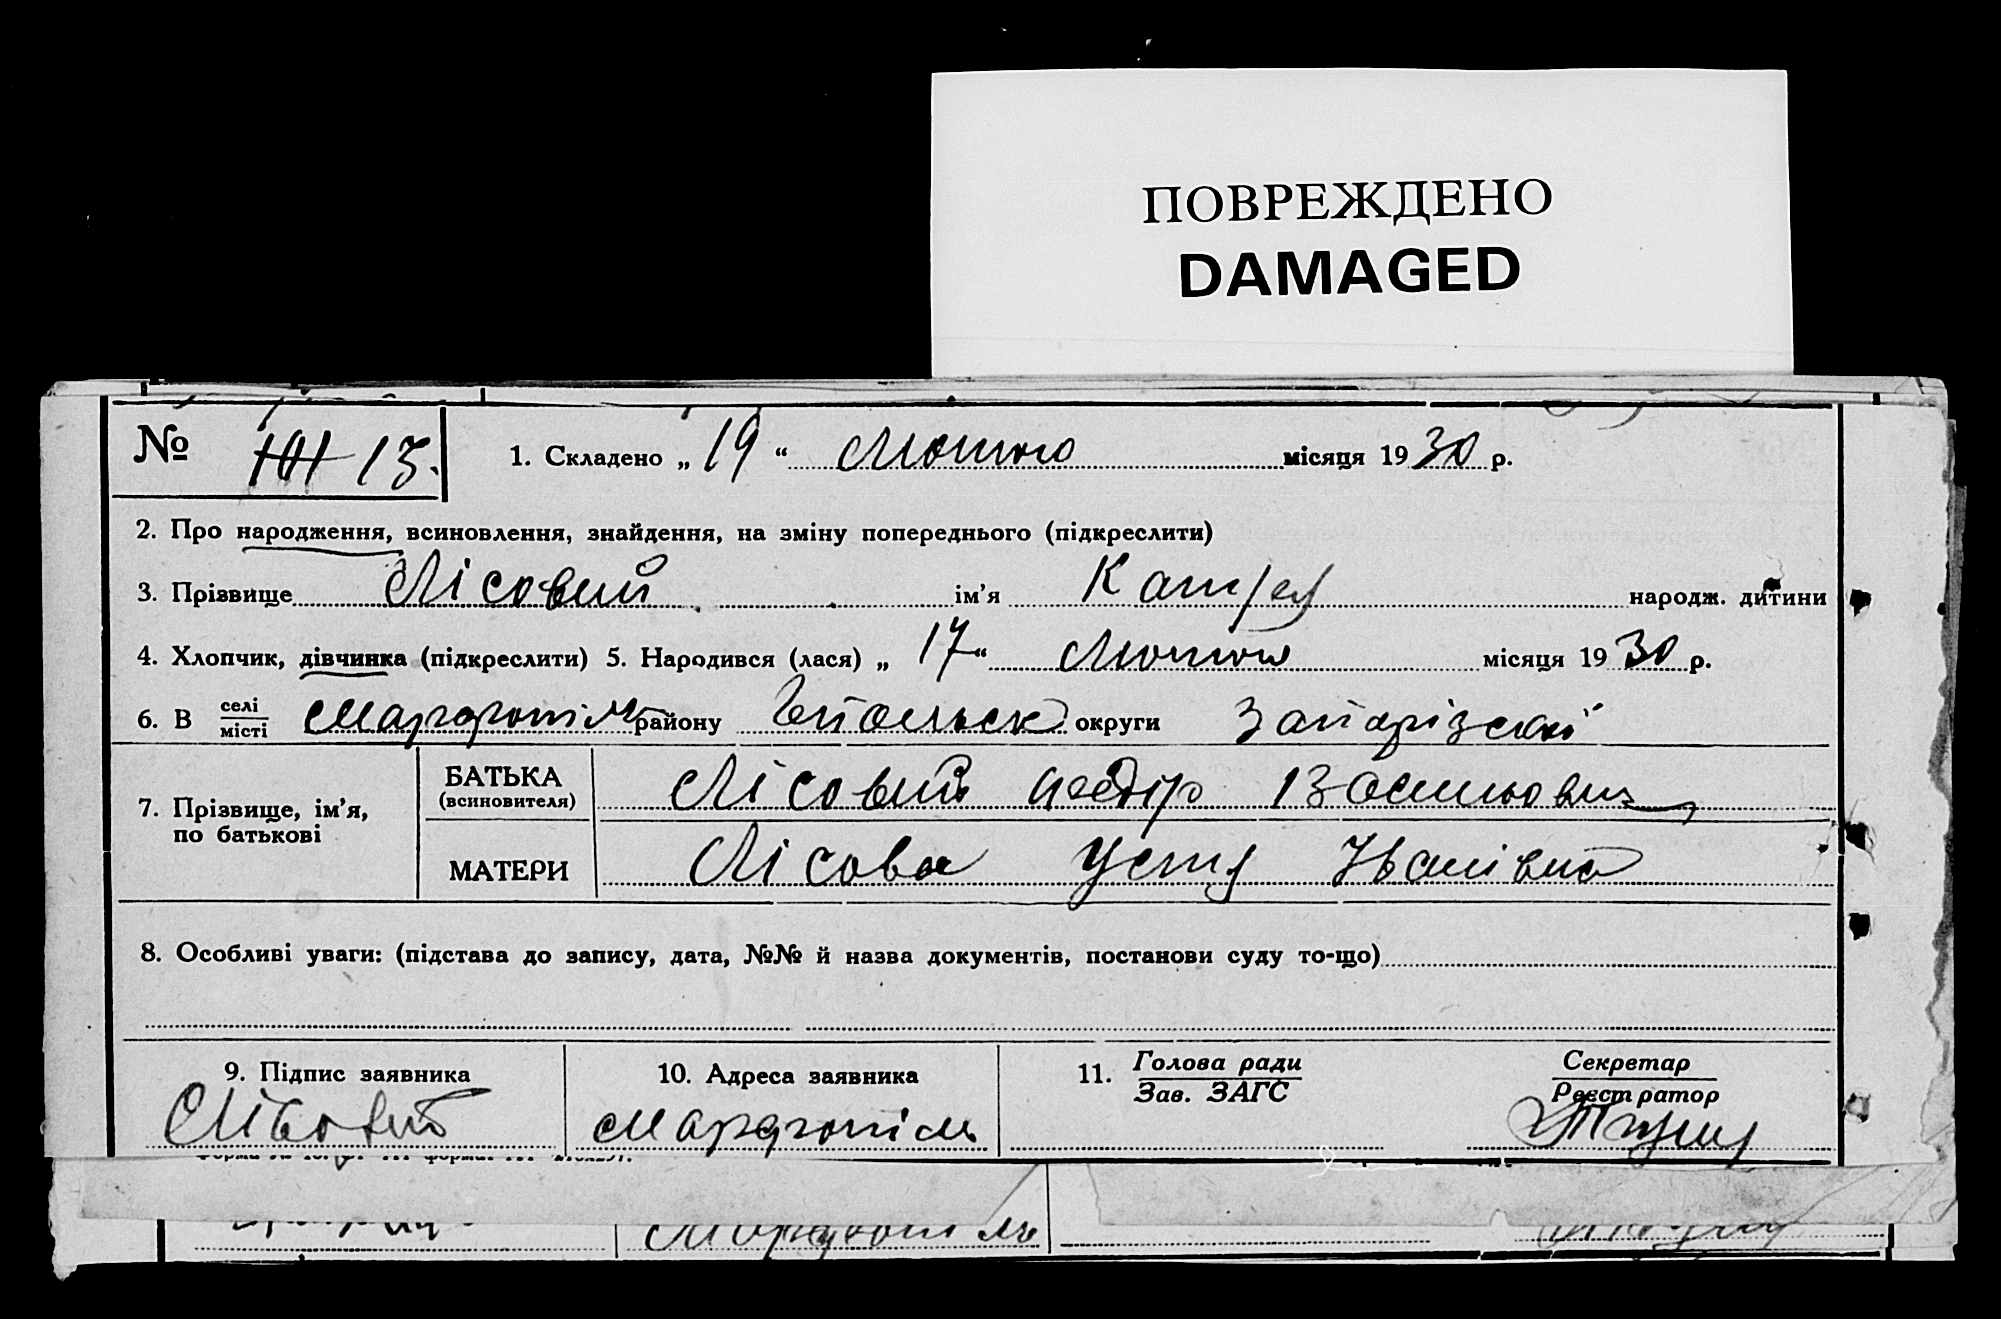 ПОВРЕЖДЕНО
DAMAGED
№ 13.
1. Складено „ 19 “ Лютого місяця 1930 р.
2. Про народження, всиновлення, знайдення, на зміну попереднього (підкреслити)
3. Прізвище Лісовий ім’я народж. дитини
4. Хлопчик, дівчинка (підкреслити) 5. Народився (лася) „ 17 “ Лютого місяця 1930 р.
6. В селі місті району округи Запорізської
7. Прізвище, ім’я, по батькові
БАТЬКА (всиновителя) Лісовий
МАТЕРИ Лісова Устя Іванівна
8. Особливі уваги: (підстава до запису, дата, №№ й назва документів, постанови суду то-що)
9. Підпис заявника
10. Адреса заявника
11. Голова ради
Зав. ЗАГС
Секретар
Реєстратор
Лісовий